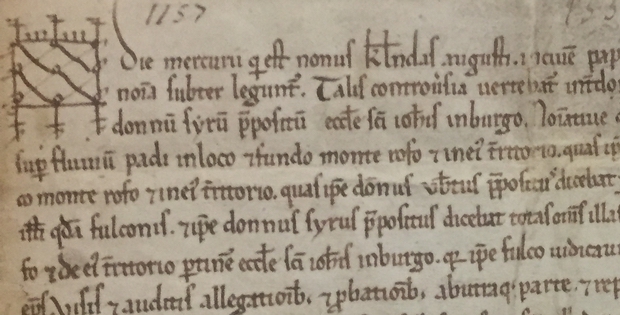 1157
Die mercurii q̄ est nonus kl̄ndas augusti. i ciuē pap
nom̄a subter leguntᷣ. Talis controv̓sia uertebatᷣ int̓ do
donnū syrū p̄positū eccłe sc̄i ioh̄is inburgo. Noīatiue
sup̱ fluuiū padi inloco ⁊fundo monte roso ⁊ inei᷒ t̄rritorio. quas ip̄
co monte roso ⁊inei᷒ t̄rritorio. quas ip̄e donnus ub̄tus p̄positus dicebat
isti qd̄a fulconis. ⁊ip̄e donnus syrus p̄positus dicebat totas om̄s illas
so ⁊de ei᷒ t̄rritorio p̱tinē eccłe sc̄i ioh̄is inburgo. qr ip̄e fulco iudicau
ei᷒ Visis ⁊ auditis allegationib᷒. ⁊ ꝓbationib᷒, abutraq; parte. ⁊ rep